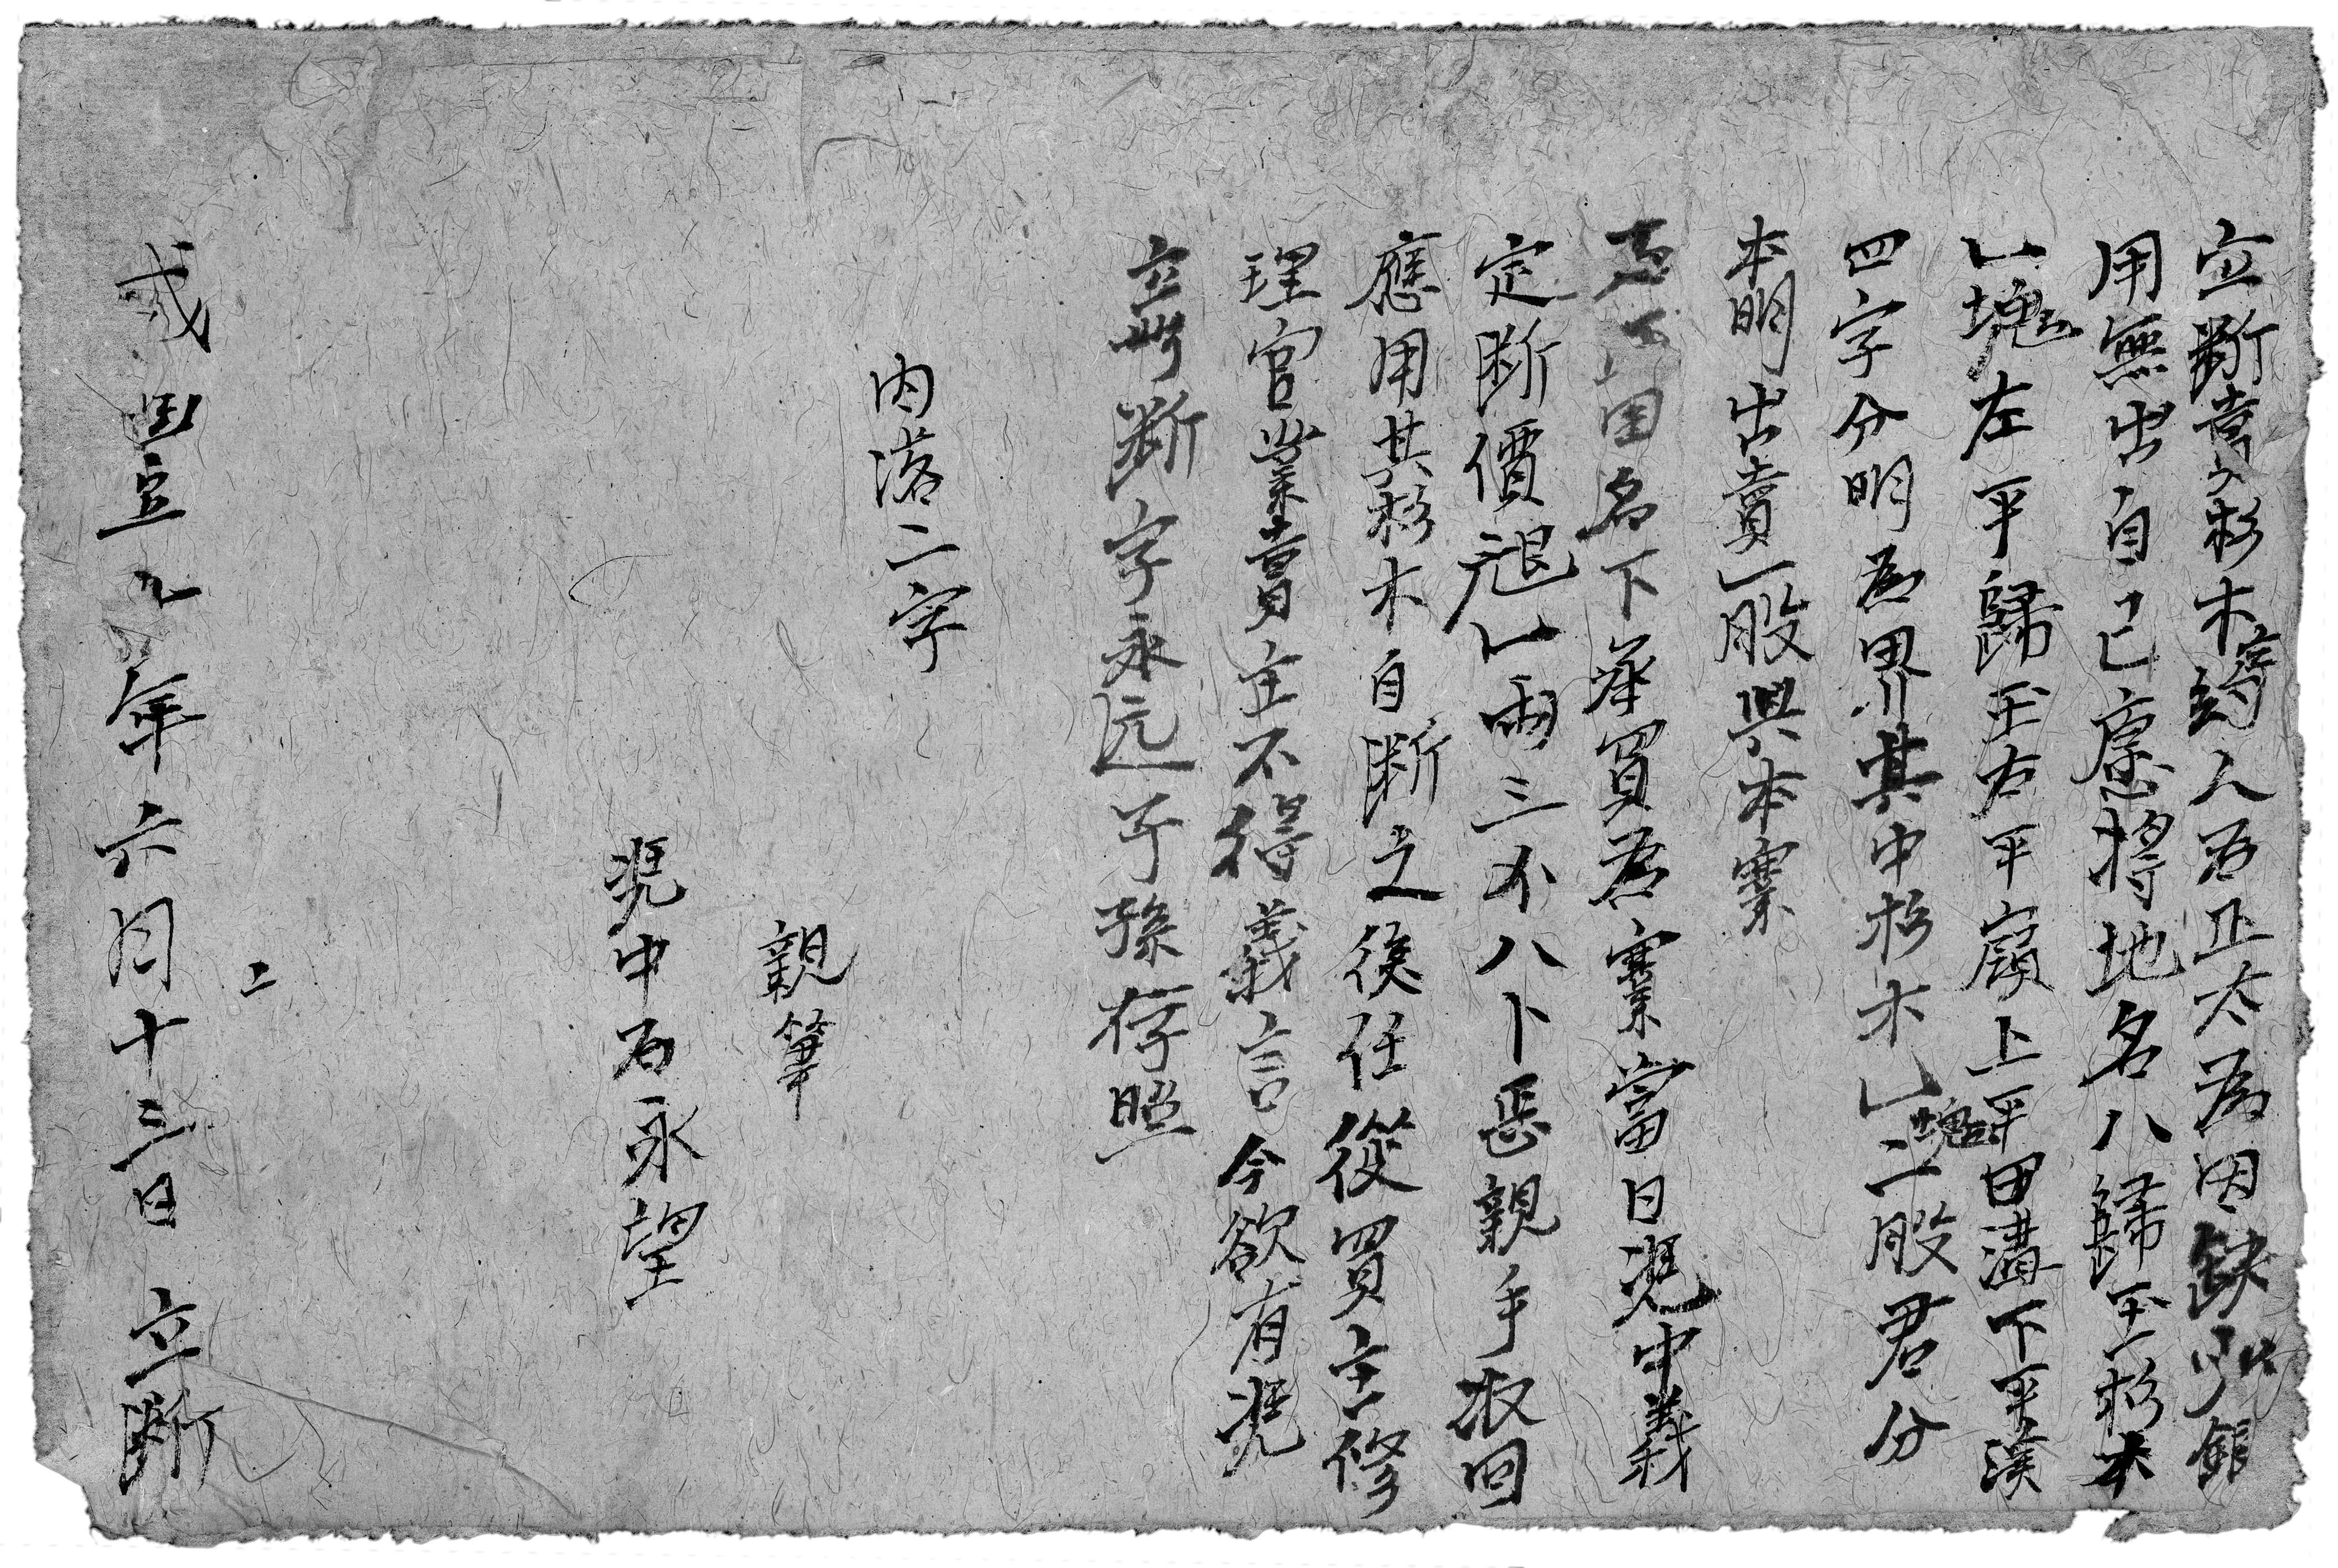 立断賣文杉木字約人石正太為因缺少銀
用無出自己愿將地名八歸至杉木
一塊左平歸至右平嶺上平田溝下平溪
四字分明為界其中杉木一塊二股君分
本明出賣一股與本寨
名下承買為寨當日凴中義
定断價艮一両三不八卜恁親手收回
應用其杉木自断之後任從買主修
理官業賣主不得義言今欲有凴
立断字永远子孫存照
内落二字
親筆
凴中石永望
年六月十三日 立断